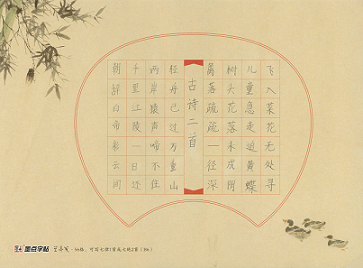 朝辞白帝彩云间
千里江陵一日还
两岸猿声啼不住
轻舟已过万重山
古诗二首
篱落疏疏一径深
树头花落未成阴
儿童急走追黄蝶
飞入菜花无处寻
墨点字帖 可写七律1首或七绝2首（8k）